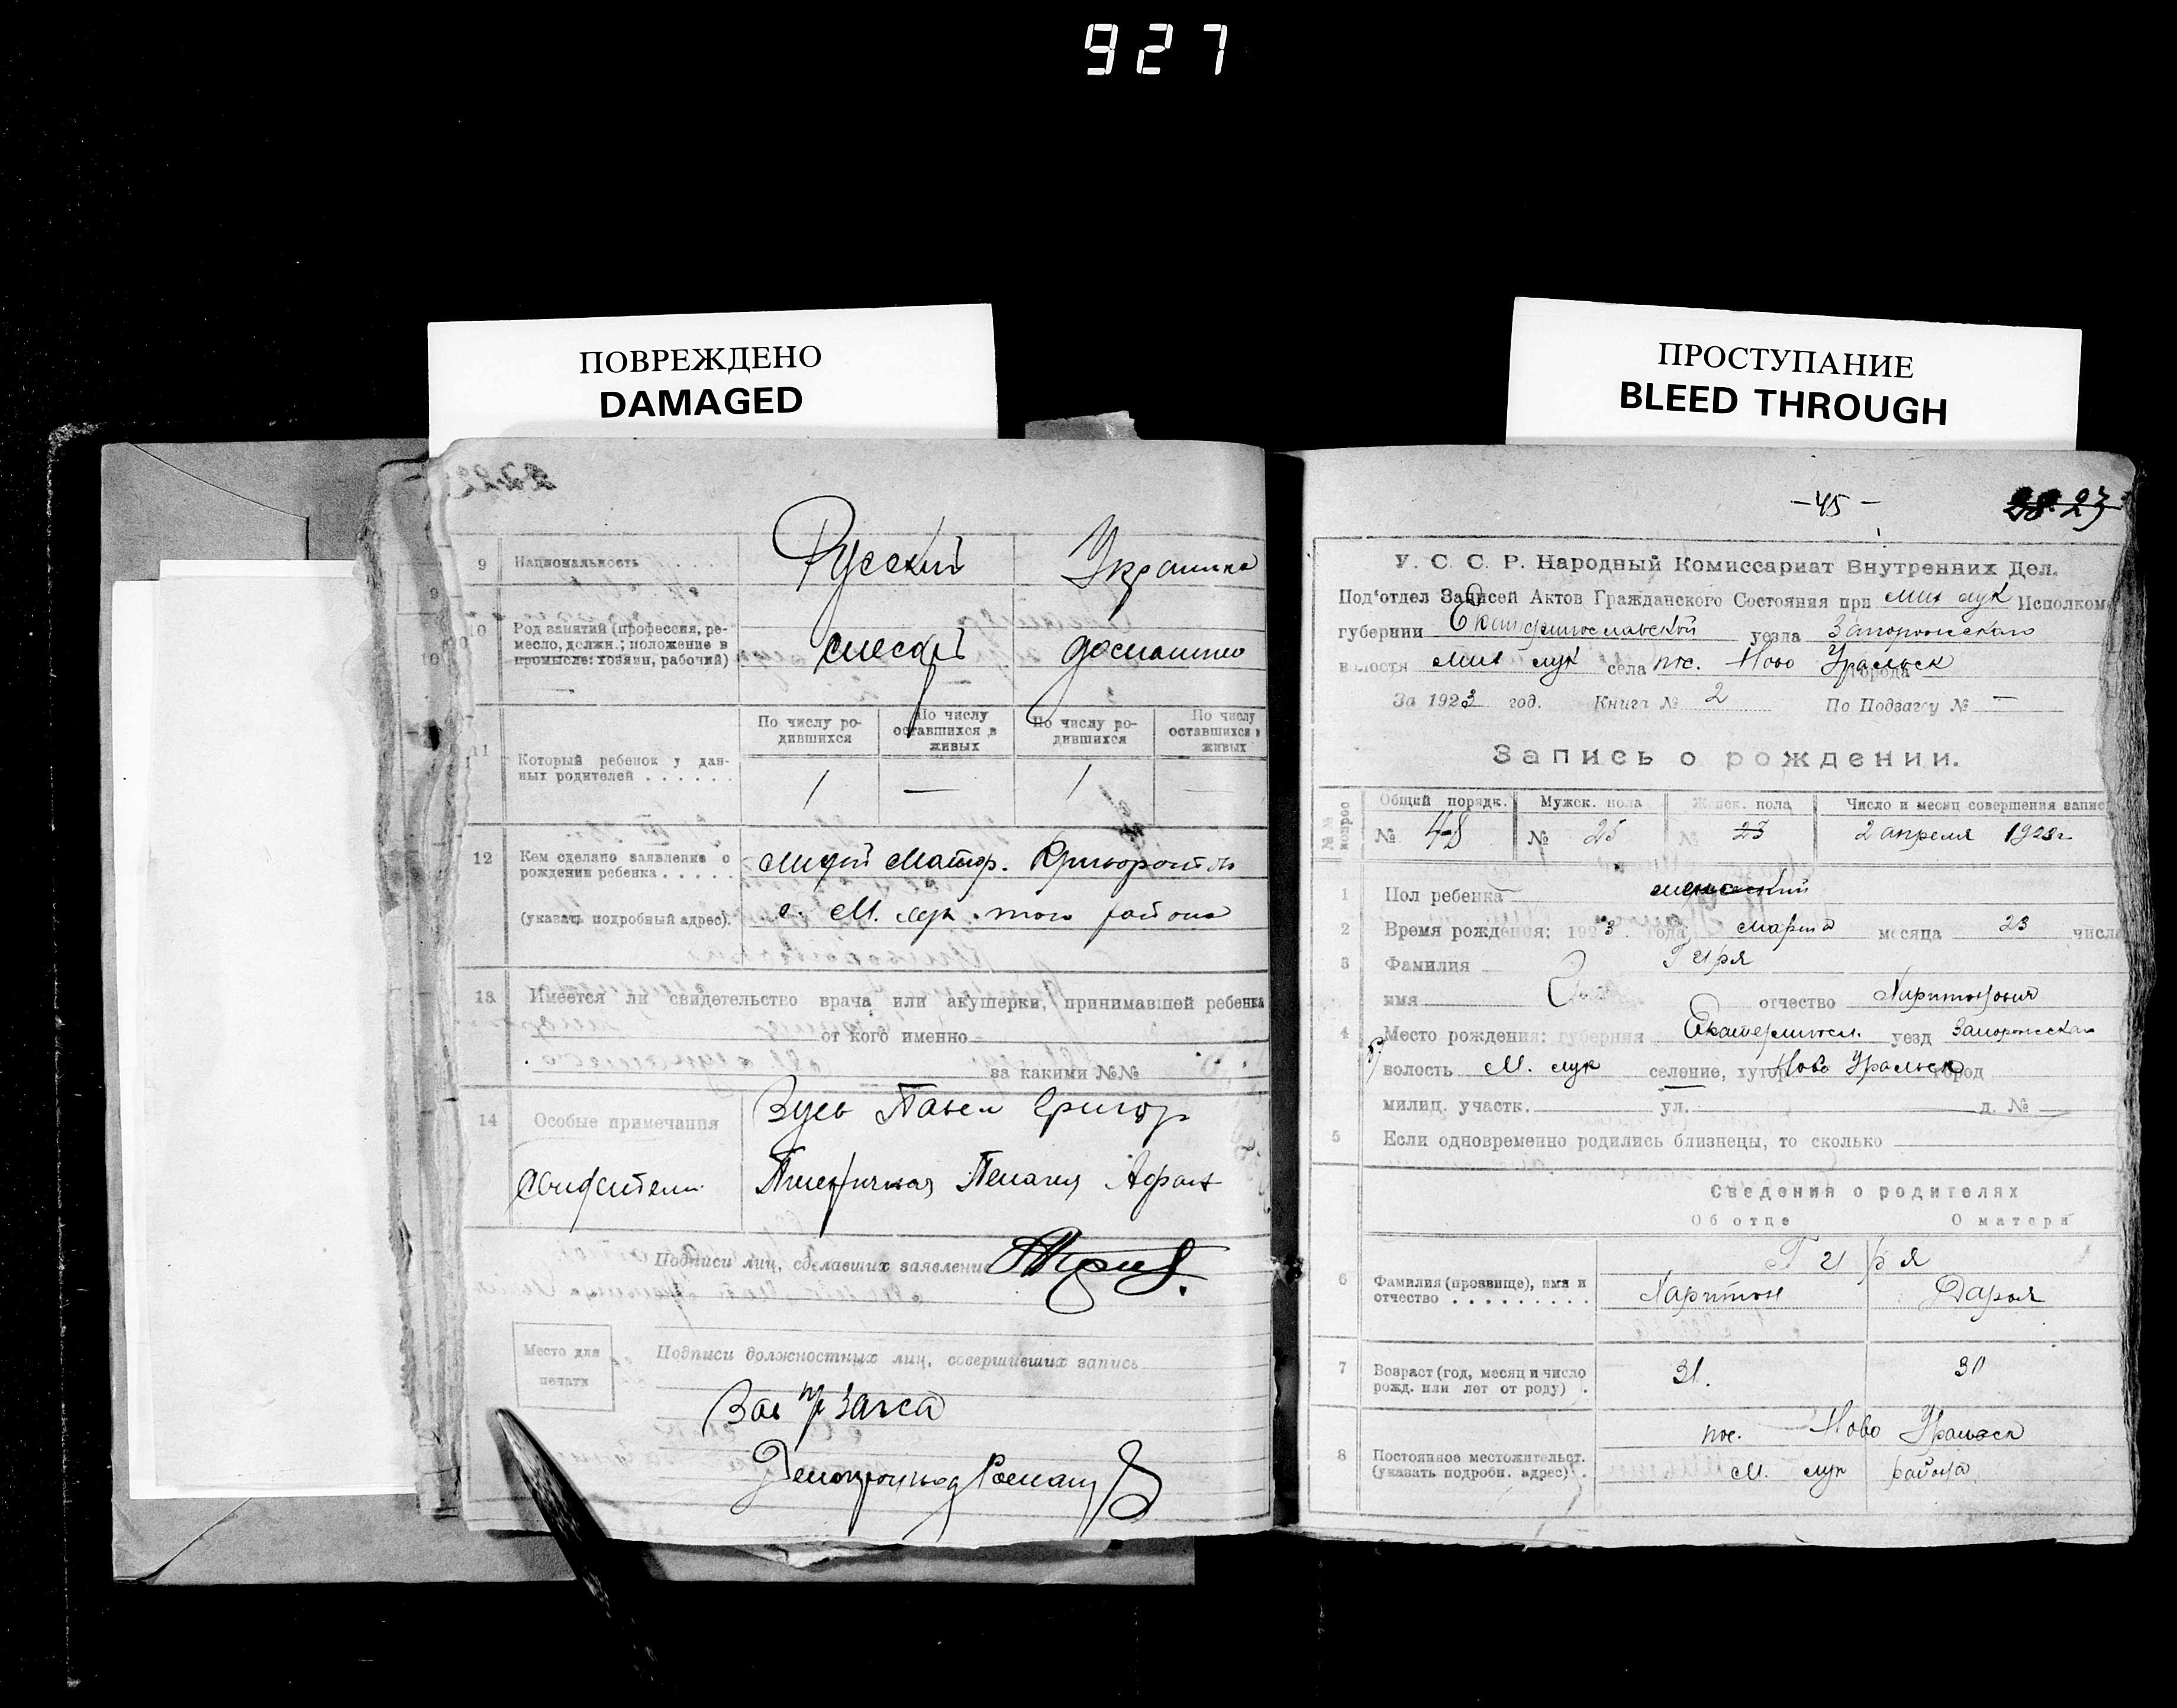 927
ПОВРЕЖДЕНО
DAMAGED
ПРОСТУПАНИЕ
BLEED THROUGH
9 Национальность Русский Украинка
10 Род занятий (профессия, ремесло, должн.; положение в промысле: хозяин, рабочий) слесарь домашние
11 Который ребенок у данных родителей
По числу родившихся По числу оставшихся в живых По числу родившихся По числу оставшихся в живых
1 — 1 —
12 Кем сделано заявление о рождении ребенка
(указать подробный адрес). с. М. лук. того района
13 Имеется ли свидетельство врача или акушерки, принимавшей ребенка
от кого именно
за какими №№
14 Особые примечания Зусь Павел Григор
Свидетели Пелагия
Подписи лиц, сделавших заявление
Место для печати
Подписи должностных лиц, совершивших запись
Зав п/загса
— 45 —
23
У. С. С. Р. Народный Комиссариат Внутренних Дел.
Под'отдел Записей Актов Гражданского Состояния при Мих лук Исполком
губернии Екатеринославской уезда Запорожскаго
волости Мих лук села пос. Ново Уральск города
За 1923 год. Книга № 2 По Подзагсу № —
Запись о рождении.
№№ вопрос Общий порядк. Мужск. пола Женск. пола Число и месяц совершения запис
№ 48 № 25 № 23 2 апреля 1923 г.
1 Пол ребенка
2 Время рождения: 1923 года Марта месяца 23 числа
3 Фамилия Гиря
имя отчество Харитонович
4 Место рождения: губерния Екатеринсл. уезд Запорожскаго
волость М. лук селение, хутор Ново Уральск город
милиц. участк. ул. д. №
5 Если одновременно родились близнецы, то сколько
Сведения о родителях
Об отце О матери
6 Фамилия (прозвище), имя и отчество Гиря
Харитон Дарья
7 Возраст (год, месяц и число рожд. или лет от роду) 31. 30
8 Постоянное местожительст. (указать подробн. адрес) пос. Ново Уральск
М. лук района